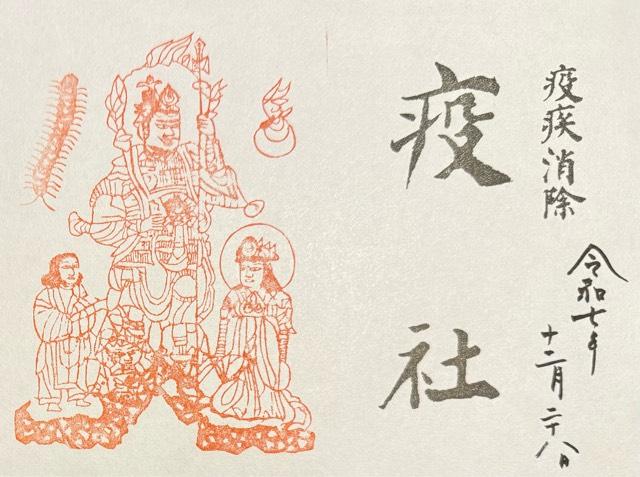 疫疾消除
令和七年
十二月二十八日
疫社